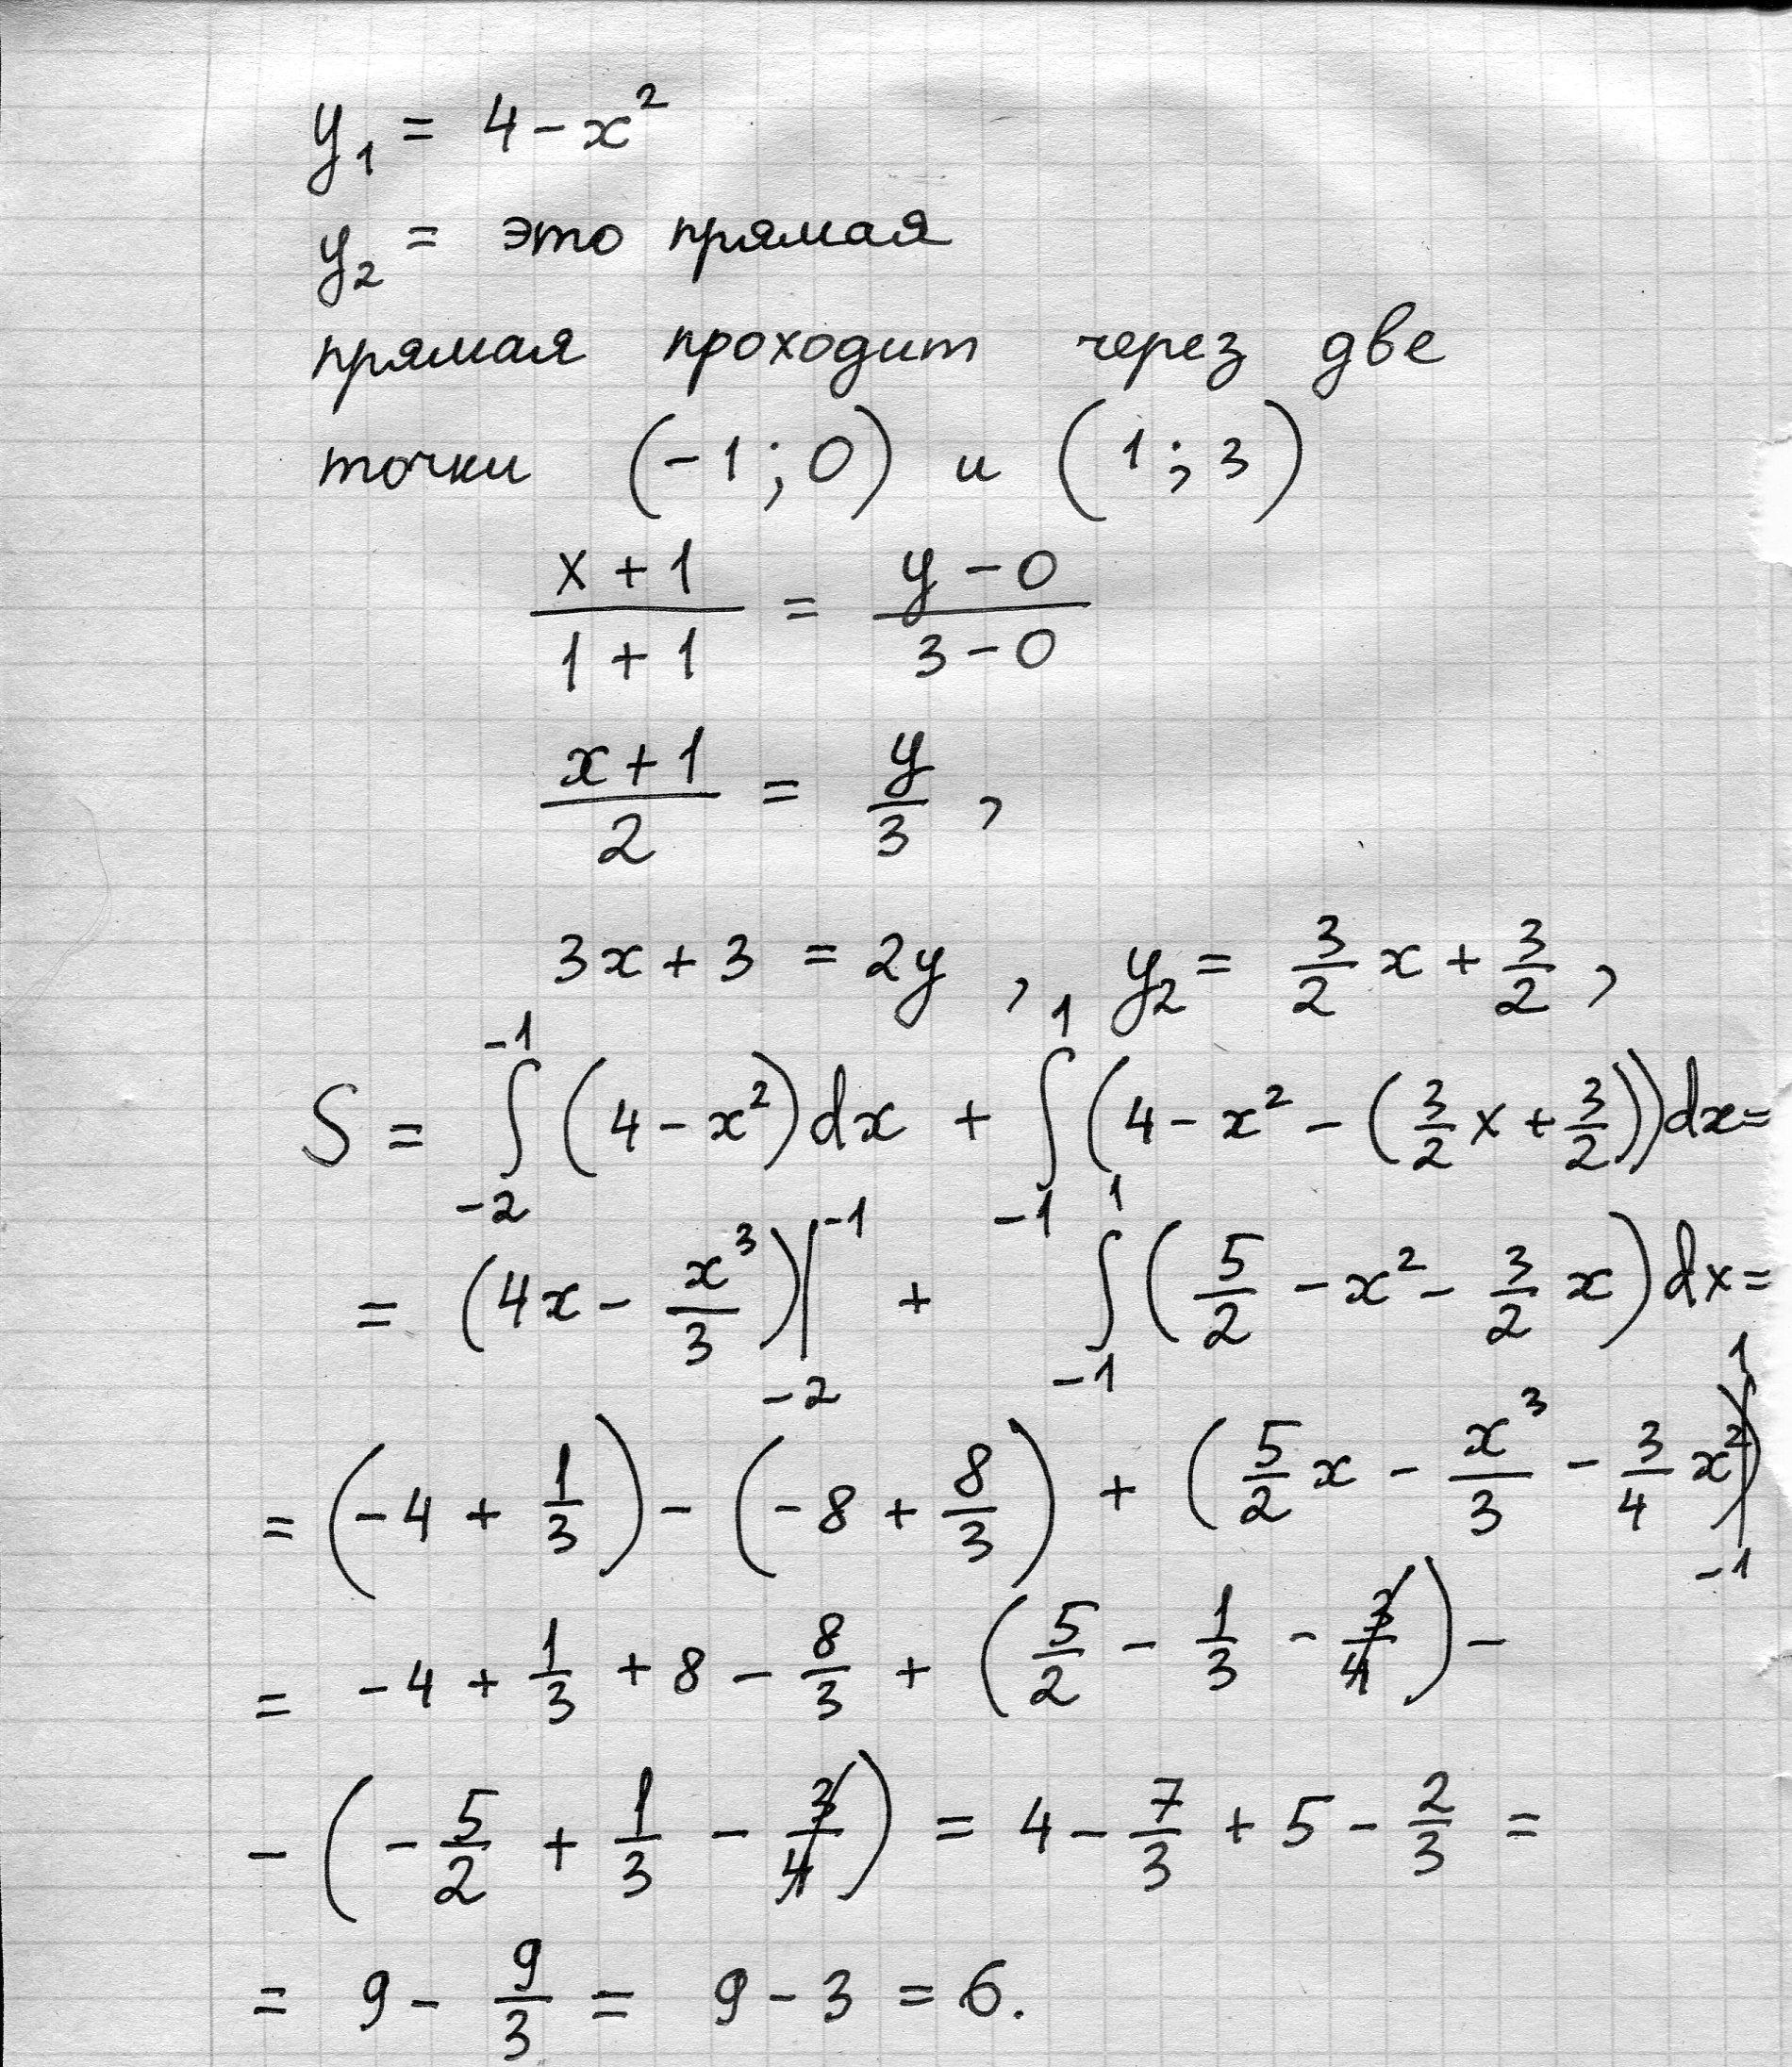 y₁ = 4 - x²
y₂ = это прямая
прямая проходит через две
точки (-1; 0) и (1; 3)
(x + 1)/(1 + 1) = (y - 0)/(3 - 0)
(x + 1)/2 = y/3 ,
3x + 3 = 2y , y₂ = 3/2 x + 3/2 ,
S = ∫₋₂⁻¹ (4 - x²)dx + ∫₋₁¹ (4 - x² - (3/2 x + 3/2))dx =
= (4x - x³/3)|₋₂⁻¹ + ∫₋₁¹ (5/2 - x² - 3/2 x)dx =
= (-4 + 1/3) - (-8 + 8/3) + (5/2 x - x³/3 - 3/4 x²)|₋₁¹
= -4 + 1/3 + 8 - 8/3 + (5/2 - 1/3 - 3/4) -
- (-5/2 + 1/3 - 3/4) = 4 - 7/3 + 5 - 2/3 =
= 9 - 9/3 = 9 - 3 = 6.